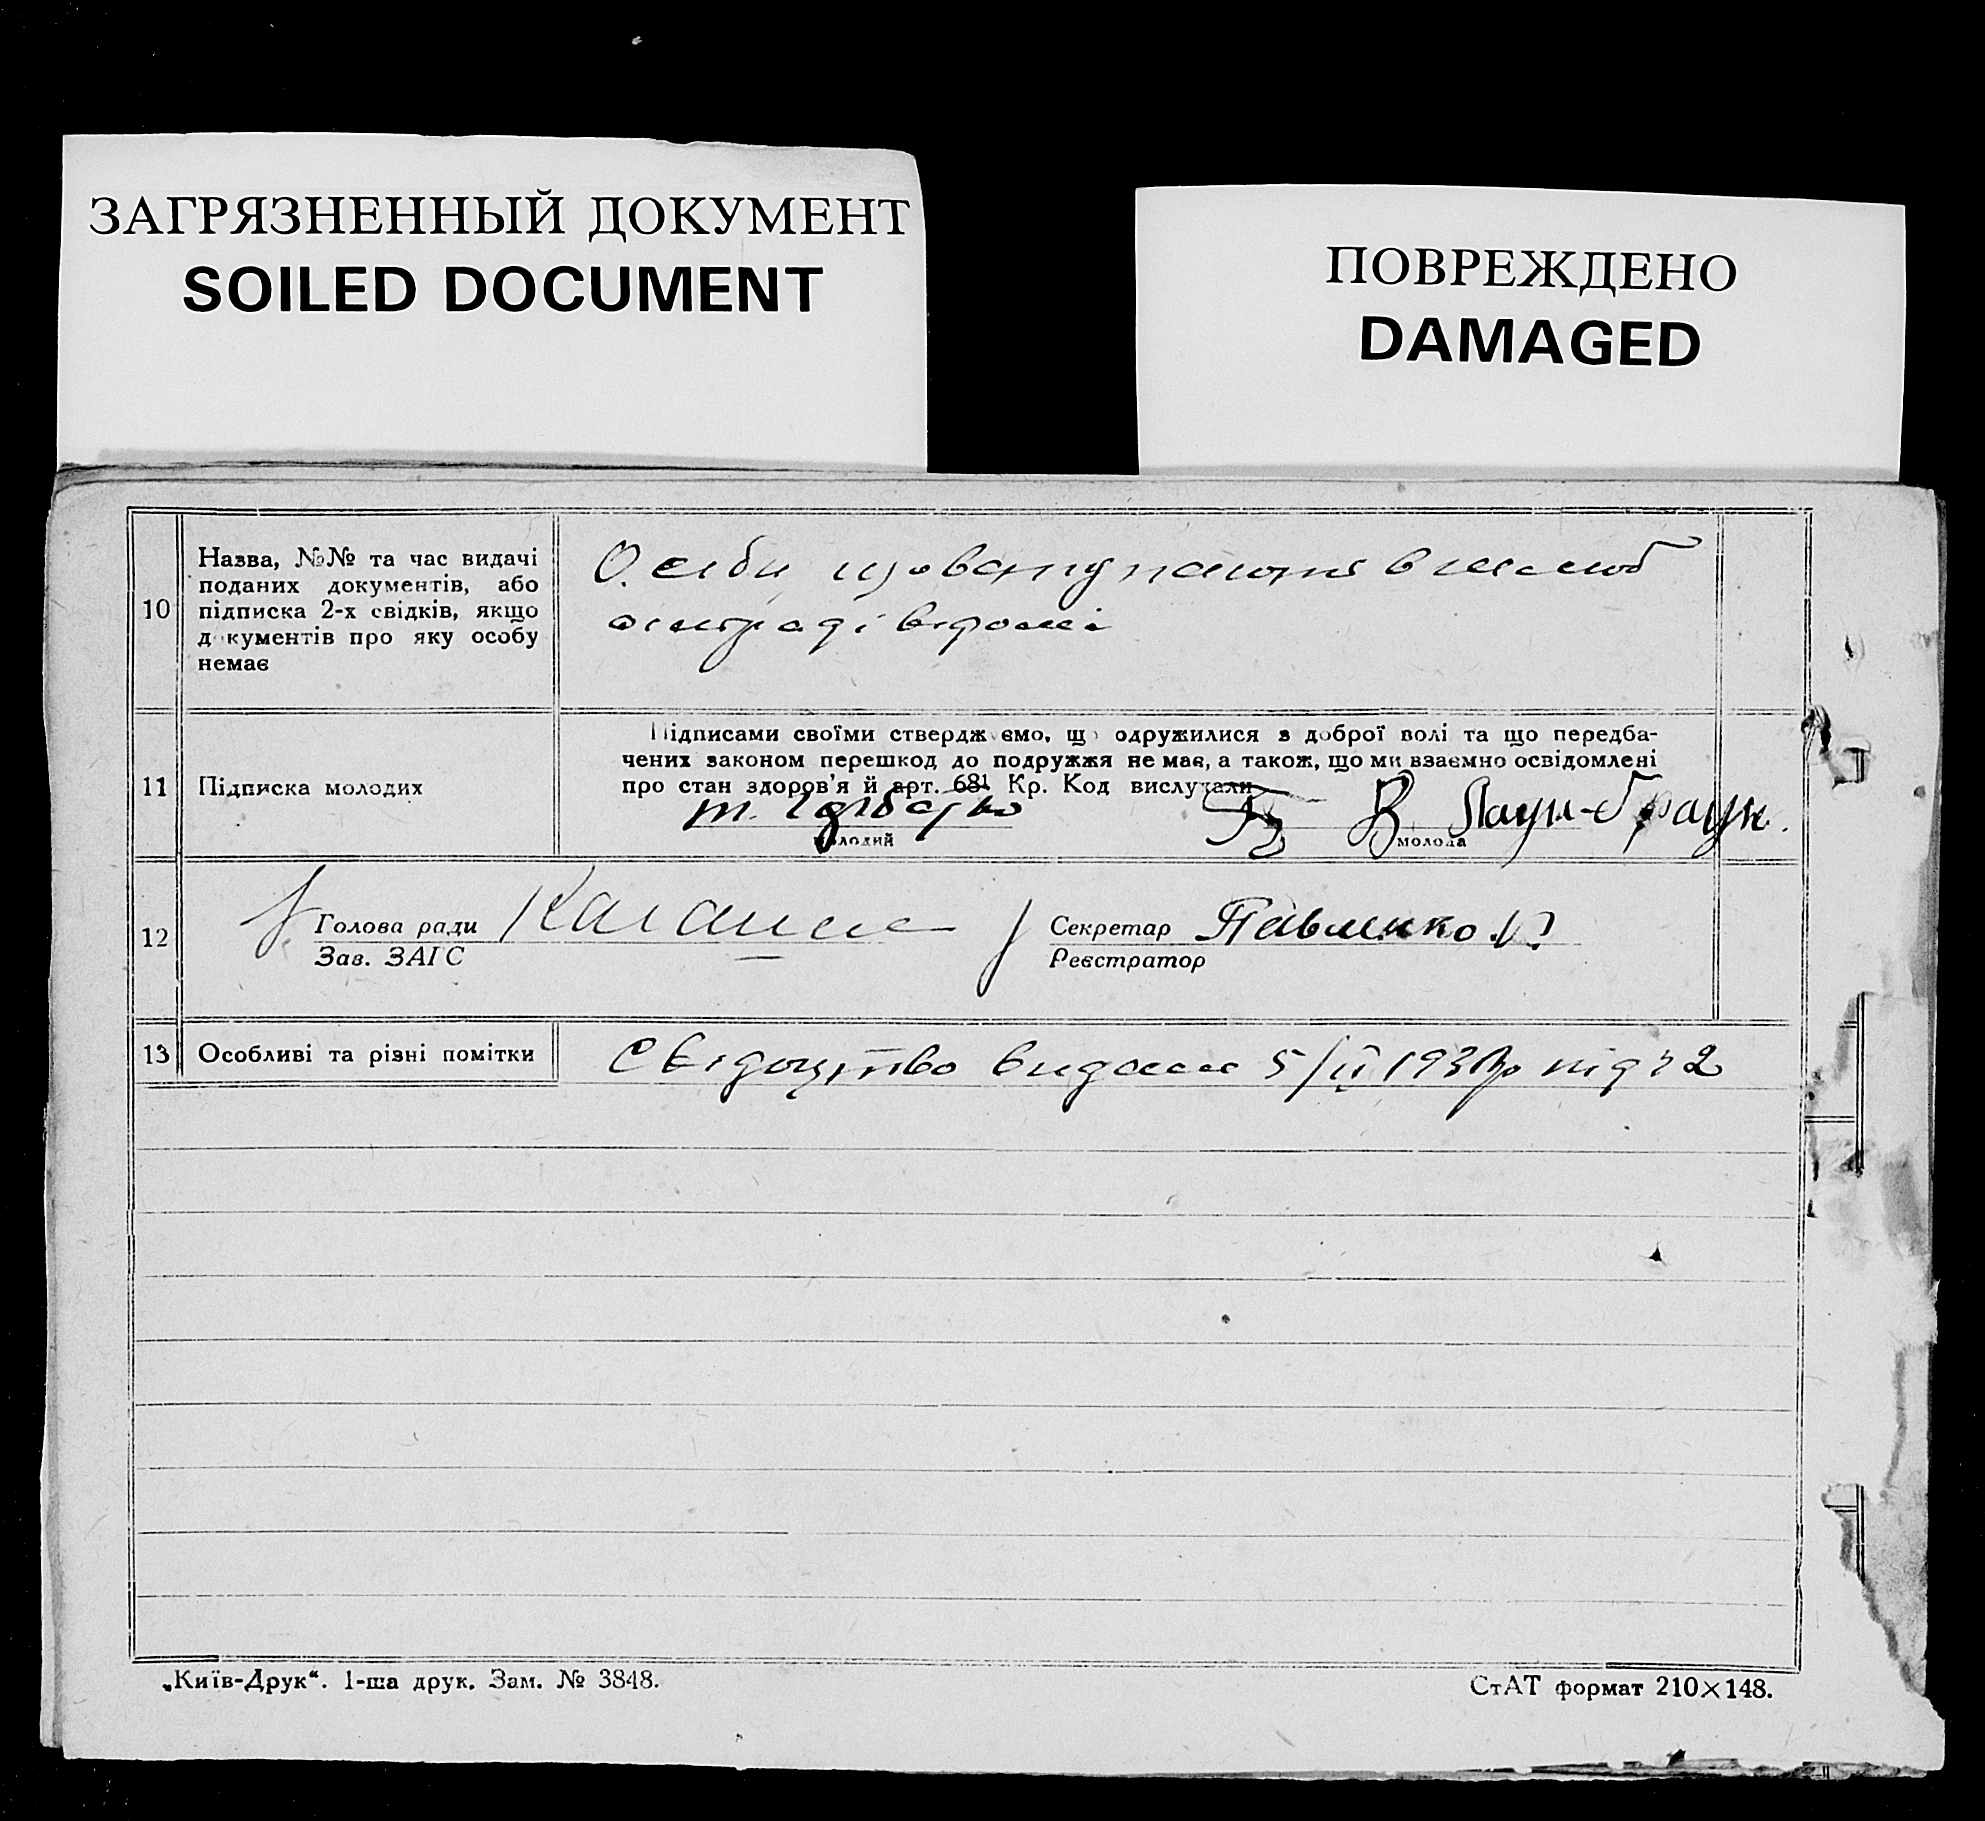 ЗАГРЯЗНЕННЫЙ ДОКУМЕНТ
SOILED DOCUMENT
ПОВРЕЖДЕНО
DAMAGED
10
Назва, №№ та час видачі
поданих документів, або
підписка 2-х свідків, якщо
документів про яку особу
немає
Особи що вступають в шлюб
сільраді відомі
11
Підписка молодих
Підписами своїми стверджуємо, що одружилися з доброї волі та що передба-
чених законом перешкод до подружжя не має, а також, що ми взаємно освідомлені
про стан здоров'я й арт. 681 Кр. Код вислухали
молодий
молода
12
Голова ради
Зав. ЗАГС
Секретар Павленко
Реєстратор
13
Особливі та різні помітки
Свідоцтво видане 5/II 193 р під № 2
„Київ-Друк“. 1-ша друк. Зам. № 3848.
СтАТ формат 210×148.